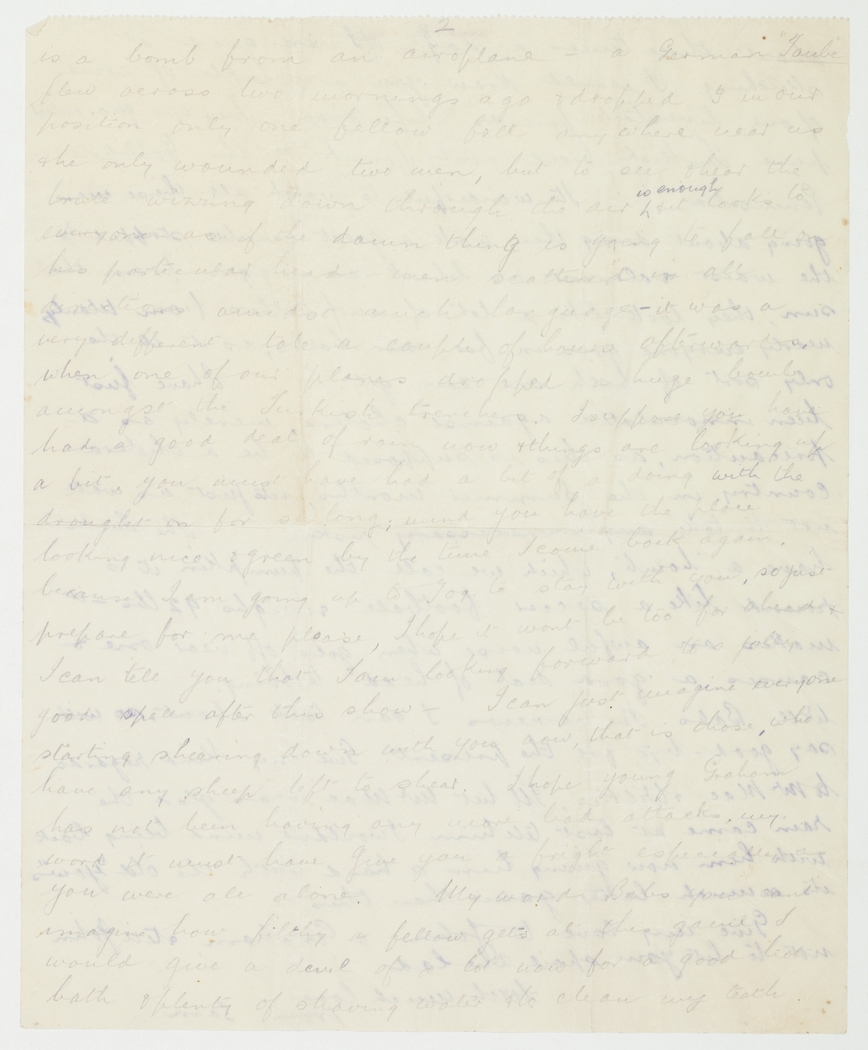 2
is a bomb from an airoplane - a German "Taube"
flew across two mornings ago & dropped 3 in our
position only one fellow fell anywhere near us
& he only wounded two men, but to see & hear the
brute wizzing down through the air is enough & it looks to
everyone as if the damn thing is going to fall on
his particular head men scatter in all
amidst much language - it was a
very different tale a couple of hours afterwards
when one of our planes dropped huge bombs
amongst the Turkish trenches. I suppose you have
had a good deal of rain now & things are looking up
a bit, you must have had a bit of a doing with the
drought on for so long; mind you have the place
looking nice & green by the time I come back again.
because I am going up to Tog to stay with you, so just
prepare for me please, I hope it wont be too far
I can tell you that I am looking forward to a
good spell after this show - I can just imagine everyone
starting shearing down with you now, that is those, who
have any sheep left to shear. I hope young Graham
has not been having any more bad attacks, my
word it must have give you a fright especially
you were all alone. My word Babs you
imagine how filthy a fellow gets at this game I
would give a devil of a lot now for a good
bath & plenty of shaving water & to clean my teeth.